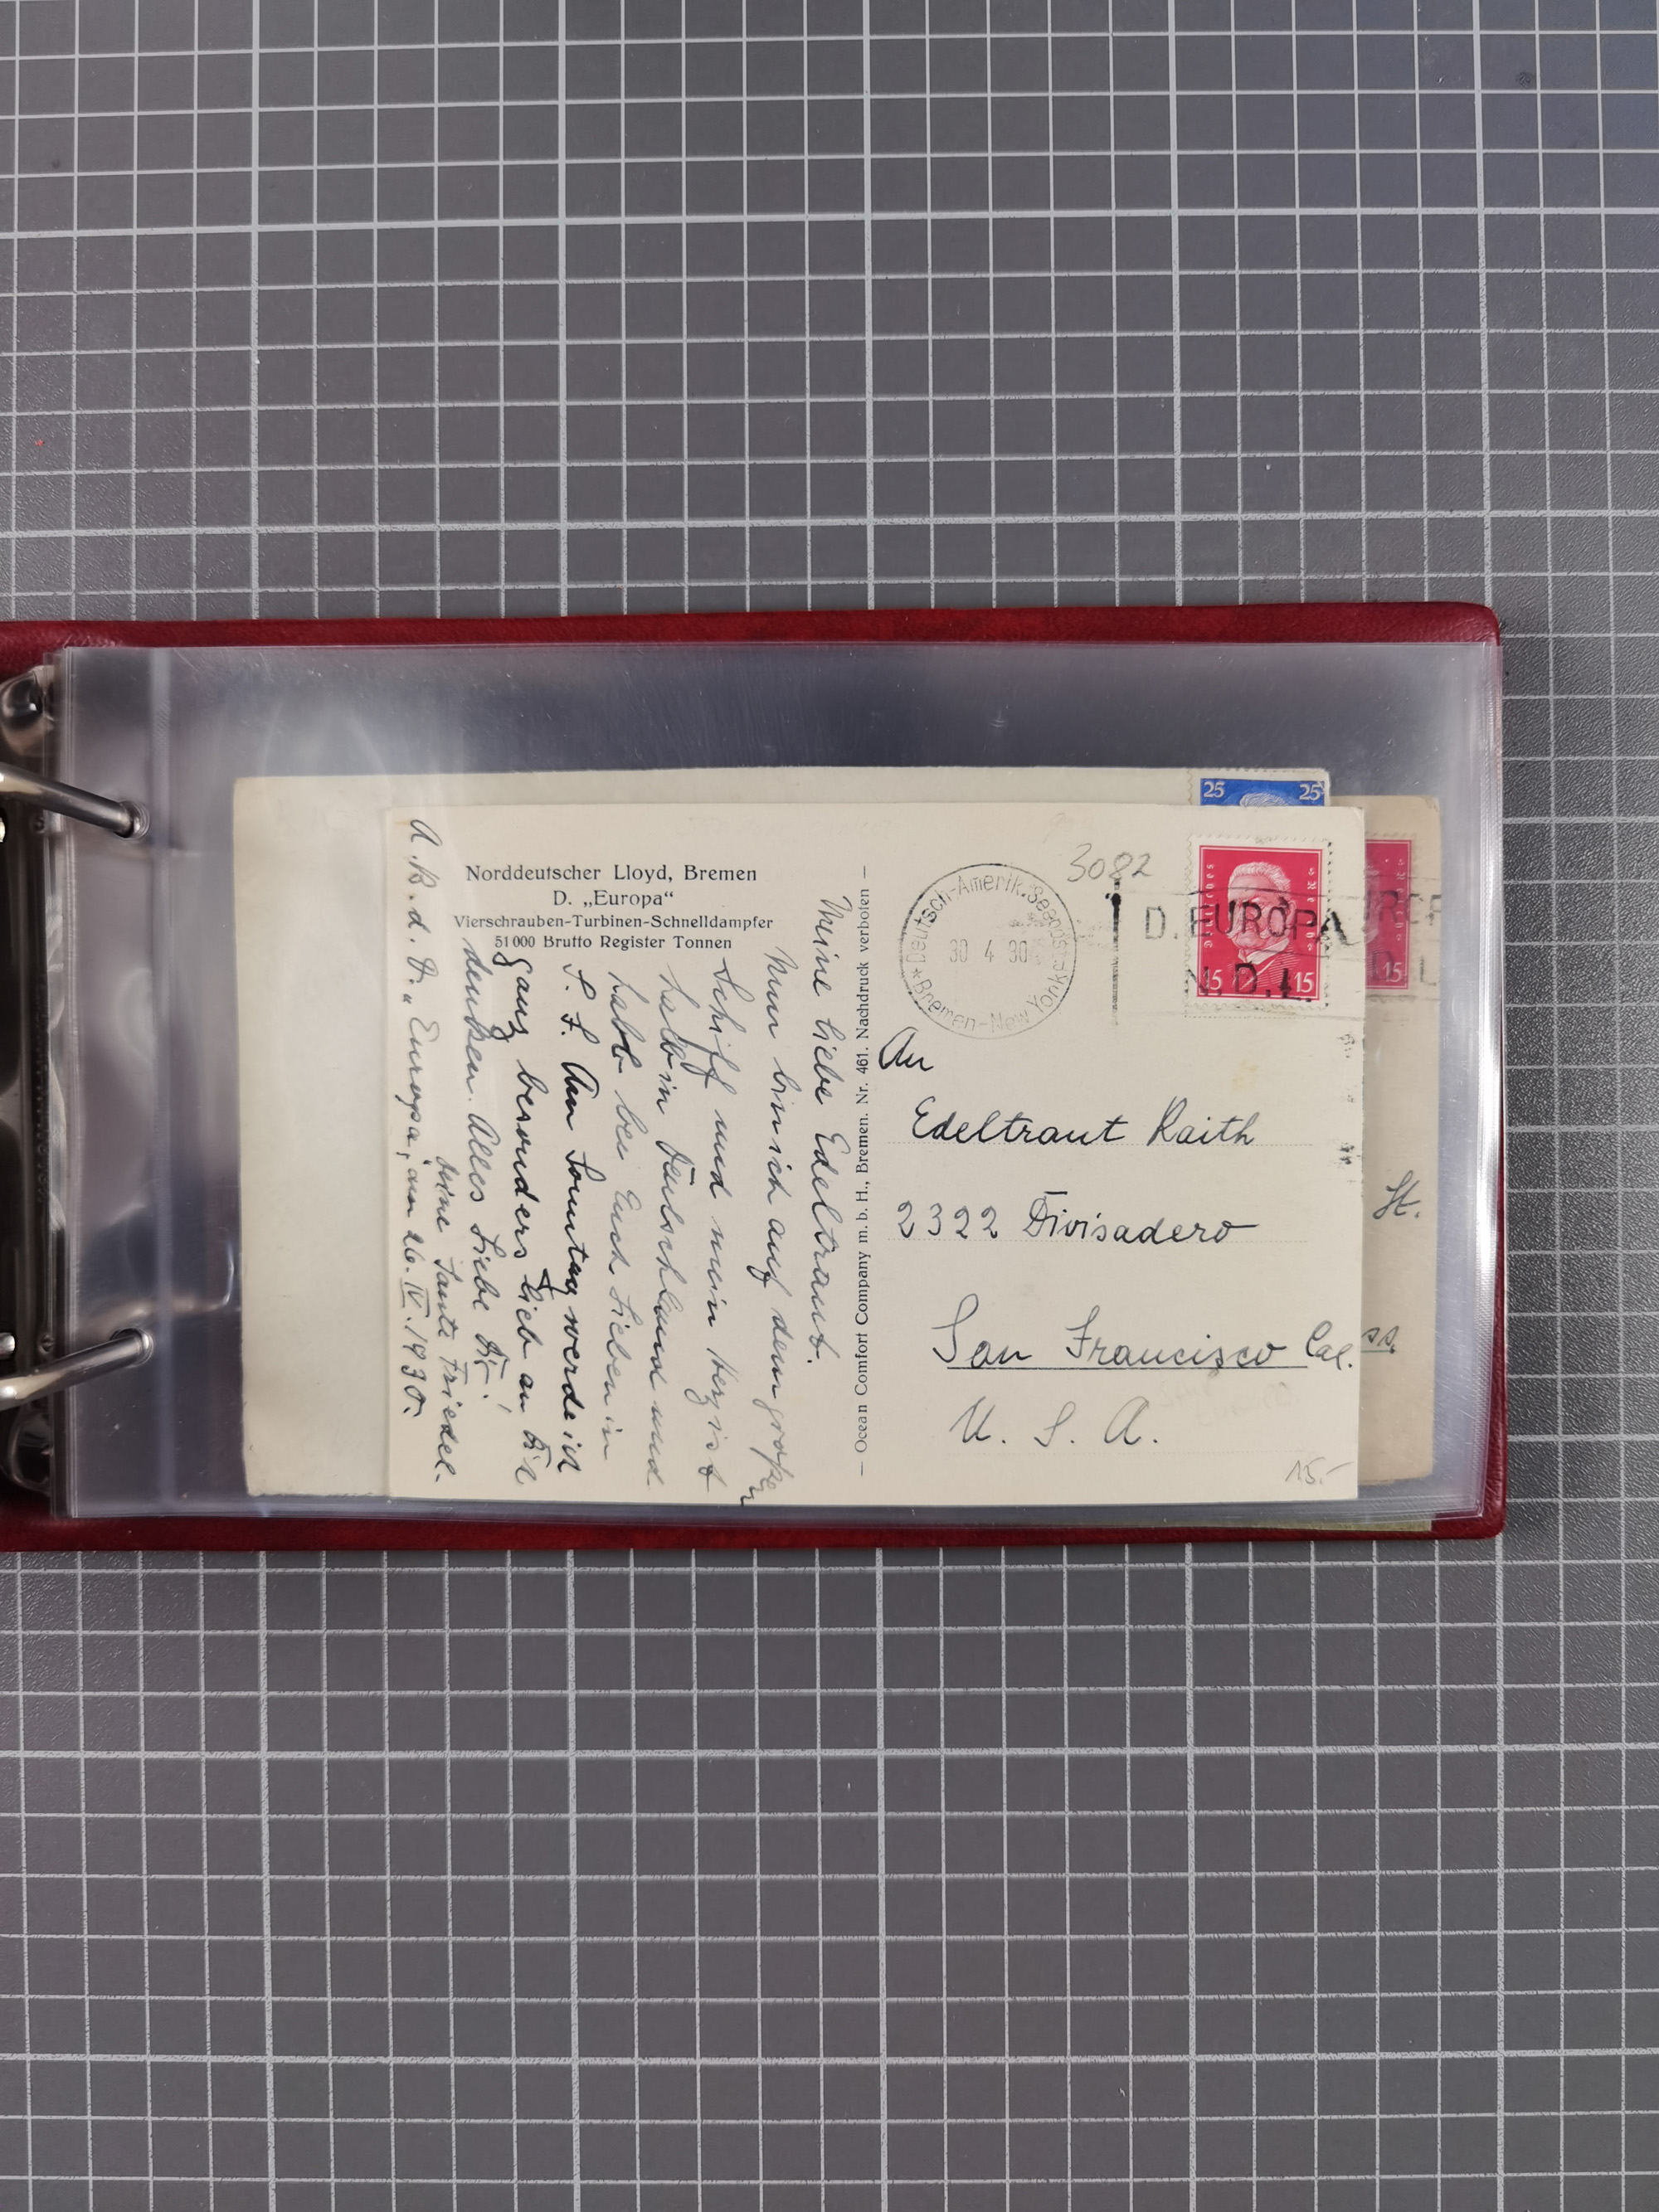 Norddeutscher Lloyd, Bremen
D. „Europa“
Vierschrauben-Turbinen-Schnelldampfer
51000 Brutto Register Tonnen
Meine liebe Edeltraut.
Nun bin ich auf dem großen
Schiff und mein Herz ist
halb in Deutschland und
halb bei Euch Lieben in
S. F. Am Sonntag werde ich
ganz besonders lieb an Dich
denken. Alles Liebe Dir,
Deine Tante Friedel.
A. B. d. D. „Europa“, am 26. IV. 1930.
— Ocean Comfort Company m. b. H., Bremen. Nr. 461. Nachdruck verboten —
3082
Deutsch-Amerik. Seepost
30 4 30
* Bremen-New York *
D. EUROPA
N.D.L.
Deutsches Reich
15 15
25 25
15
An
Edeltraut Raith
2322 Divisadero
San Francisco Cal.
U. S. A.
15.-
St.
ss.